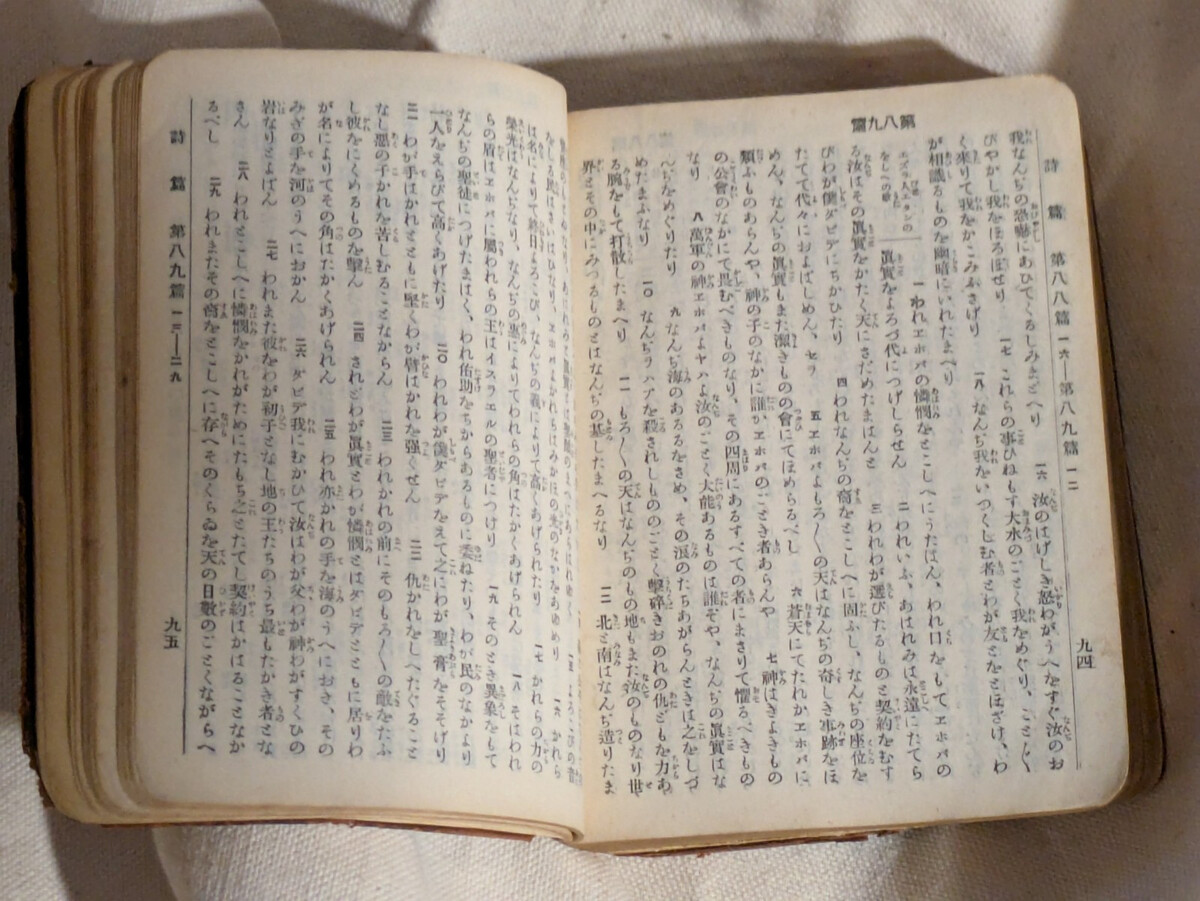 詩篇 第八八篇 一六―第八九篇 一二
九四
我なんぢの恐嚇にあひてくるしみまどへり 一六 汝のはげしき怒わがうへをすぐ汝のお
びやかし我をほろぼせり 一七 これらの事ひねもす大水のごとく我をめぐり、ことごとく
く來りて我をかこみふさげり 一八 なんぢ我をいつくしむ者とわが友とをとほざけ、わ
が相識るものを幽暗にいれたまへり
第八九篇
エズラ人エタンの
をしへの歌
一 われヱホバの憐憫をとこしへにうたはん、われ口をもてヱホバの
眞實をよろづ代につげしらせん 二 われいふ、あはれみは永遠にたてら
る汝はその眞實をかたく天にさだめたまはんと 三 われわが選びたるものと契約をむす
びわが僕ダビデにちかひたり 四 われなんぢの裔をとこしへに固ふし、なんぢの座位を
たてて代々におよばしめん、セラ 五 ヱホバよもろ〱の天はなんぢの奇しき事跡をほ
めん、なんぢの眞實もまた潔きものの會にてほめらるべし 六 蒼天にてたれかヱホバに
類ふものあらんや、神の子のなかに誰かヱホバのごとき者あらんや 七 神はきよきもの
の公會のなかにて畏むべきものなり、その四周にあるすべての者にまさりて懼るべきもの
なり 八 萬軍の神ヱホバよヤハよ汝のごとく大能あるものは誰ぞや、なんぢの眞實はな
んぢをめぐりたり 九 なんぢ海のあるるををさめ、その浪のたちあがらんときは之をしづ
めたまふなり 一〇 なんぢラハブを殺されしもののごとく擊碎きおのれの仇どもを力あ
る腕をもて打散したまへり 一一 もろ〱の天はなんぢのもの地もまた汝のものなり世
界とその中にみつるものとはなんぢの基したまへるなり 一二 北と南はなんぢ造りたま
一五 よろこびの音
をしる民はさいはひなり、ヱホバよかれらはみかほの光のなかをあゆめり 一六 かれら
は名によりて終日よろこび、なんぢの義によりて高くあげられたり 一七 かれらの力の
榮光はなんぢなり、なんぢの惠によりてわれらの角はたかくあげられん 一八 そはわれ
らの盾はヱホバに屬われらの王はイスラエルの聖者につけり 一九 そのとき異象をもて
なんぢの聖徒につげたまはく、われ佑助をちからあるものに委ねたり、わが民のなかより
一人をえらびて高くあげたり 二〇 われわが僕ダビデをえて之にわが聖膏をそそげり
二一 わが手はかれとともに堅くわが臂はかれを強くせん 二二 仇かれをしへたぐること
なし惡の子かれを苦しむることなからん 二三 われかれの前にそのもろ〱の敵をたふ
し彼をにくめるものを擊ん 二四 されどわが眞實とわが憐憫とはダビデとともに居りわ
が名によりてその角はたかくあげられん 二五 われ亦かれの手を海のうへにおき、その
みぎの手を河のうへにおかん 二六 ダビデ我にむかひて汝はわが父わが神わがすくひの
岩なりとよばん 二七 われまた彼をわが初子となし地の王たちのうち最もたかき者とな
さん 二八 われとこしへに憐憫をかれがためにたもち之とたてし契約はかはることなか
るべし 二九 われまたその裔をとこしへに存へそのくらゐを天の日數のごとくながらへ
詩篇 第八九篇 一三―二九
九五